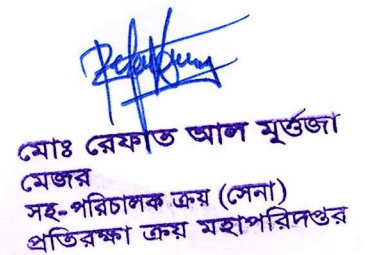 মোঃ রেফাত আল মূর্তজা
মেজর
সহ-পরিচালক ক্রয় (সেনা)
প্রতিরক্ষা ক্রয় মহাপরিদপ্তর